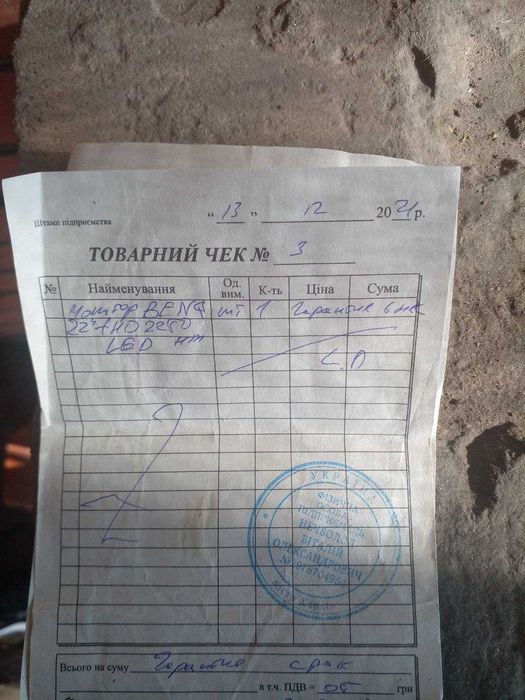 Штамп підприємства
“ 13 ” 12 2021 р.
ТОВАРНИЙ ЧЕК № 3
№ Найменування Од. вим. К-ть Ціна Сума
Монітор BENQ шт 1 Гарантия 6 мес
22" FHD
LED
УКРАЇНА
ФІЗИЧНА
ОСОБА
ПІДПРИЄМЕЦЬ
ВІТАЛІЙ
ОЛЕКСАНДРОВИЧ
Всього на суму Гарантия срок
в т.ч. ПДВ = от грн